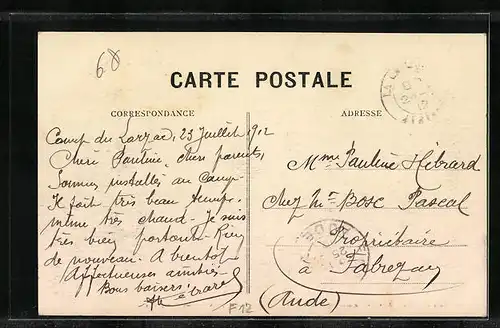 68
CARTE POSTALE
CORRESPONDANCE
ADRESSE
Camp du Larzac, 23 Juillet 1912
Chère Pauline, chers parents,
Sommes installés au Camp.
Il fait très beau temps
même très chaud - Je suis
très bien portant - Rien
de nouveau. A bientôt
Affectueuses amitiés
Bons baisers.
Mme Pauline Hébrard
Chez Mr Bosc Pascal
Propriétaire
à Fabrezan
(Aude)
F12